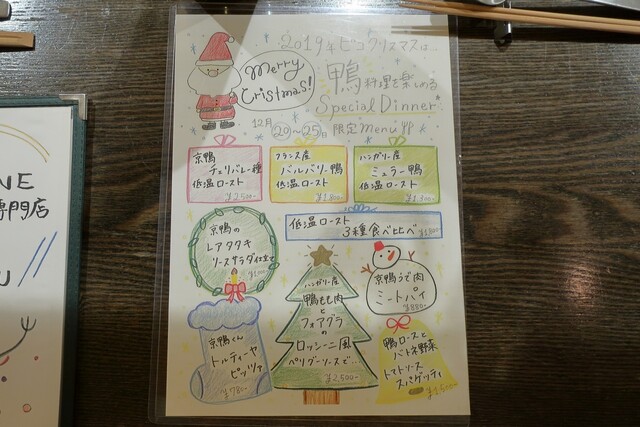 2019年ピコクリスマスは…
Merry
Cristmas!
鴨料理を楽しめる
Special Dinner
12月20〜25日限定menu
京鴨
チェリバレー種
低温ロースト
¥2,500-
フランス産
バルバリー鴨
低温ロースト
¥1,800-
ハンガリー産
ミュラー鴨
低温ロースト
¥1,300-
低温ロースト
3種食べ比べ
京鴨の
レアタタキ
ソースサラダ仕立て
ハンガリー産
鴨もも肉
と
フォアグラ
の
ロッシーニ風
ペリグーソースで…
¥2,500-
京鴨うで肉
ミートパイ
¥880-
京鴨くん
トルティーヤ
ピッツァ
¥780-
鴨ロースと
バトネ野菜
トマトソース
スパゲッティ
¥1,500-
NE
専門店